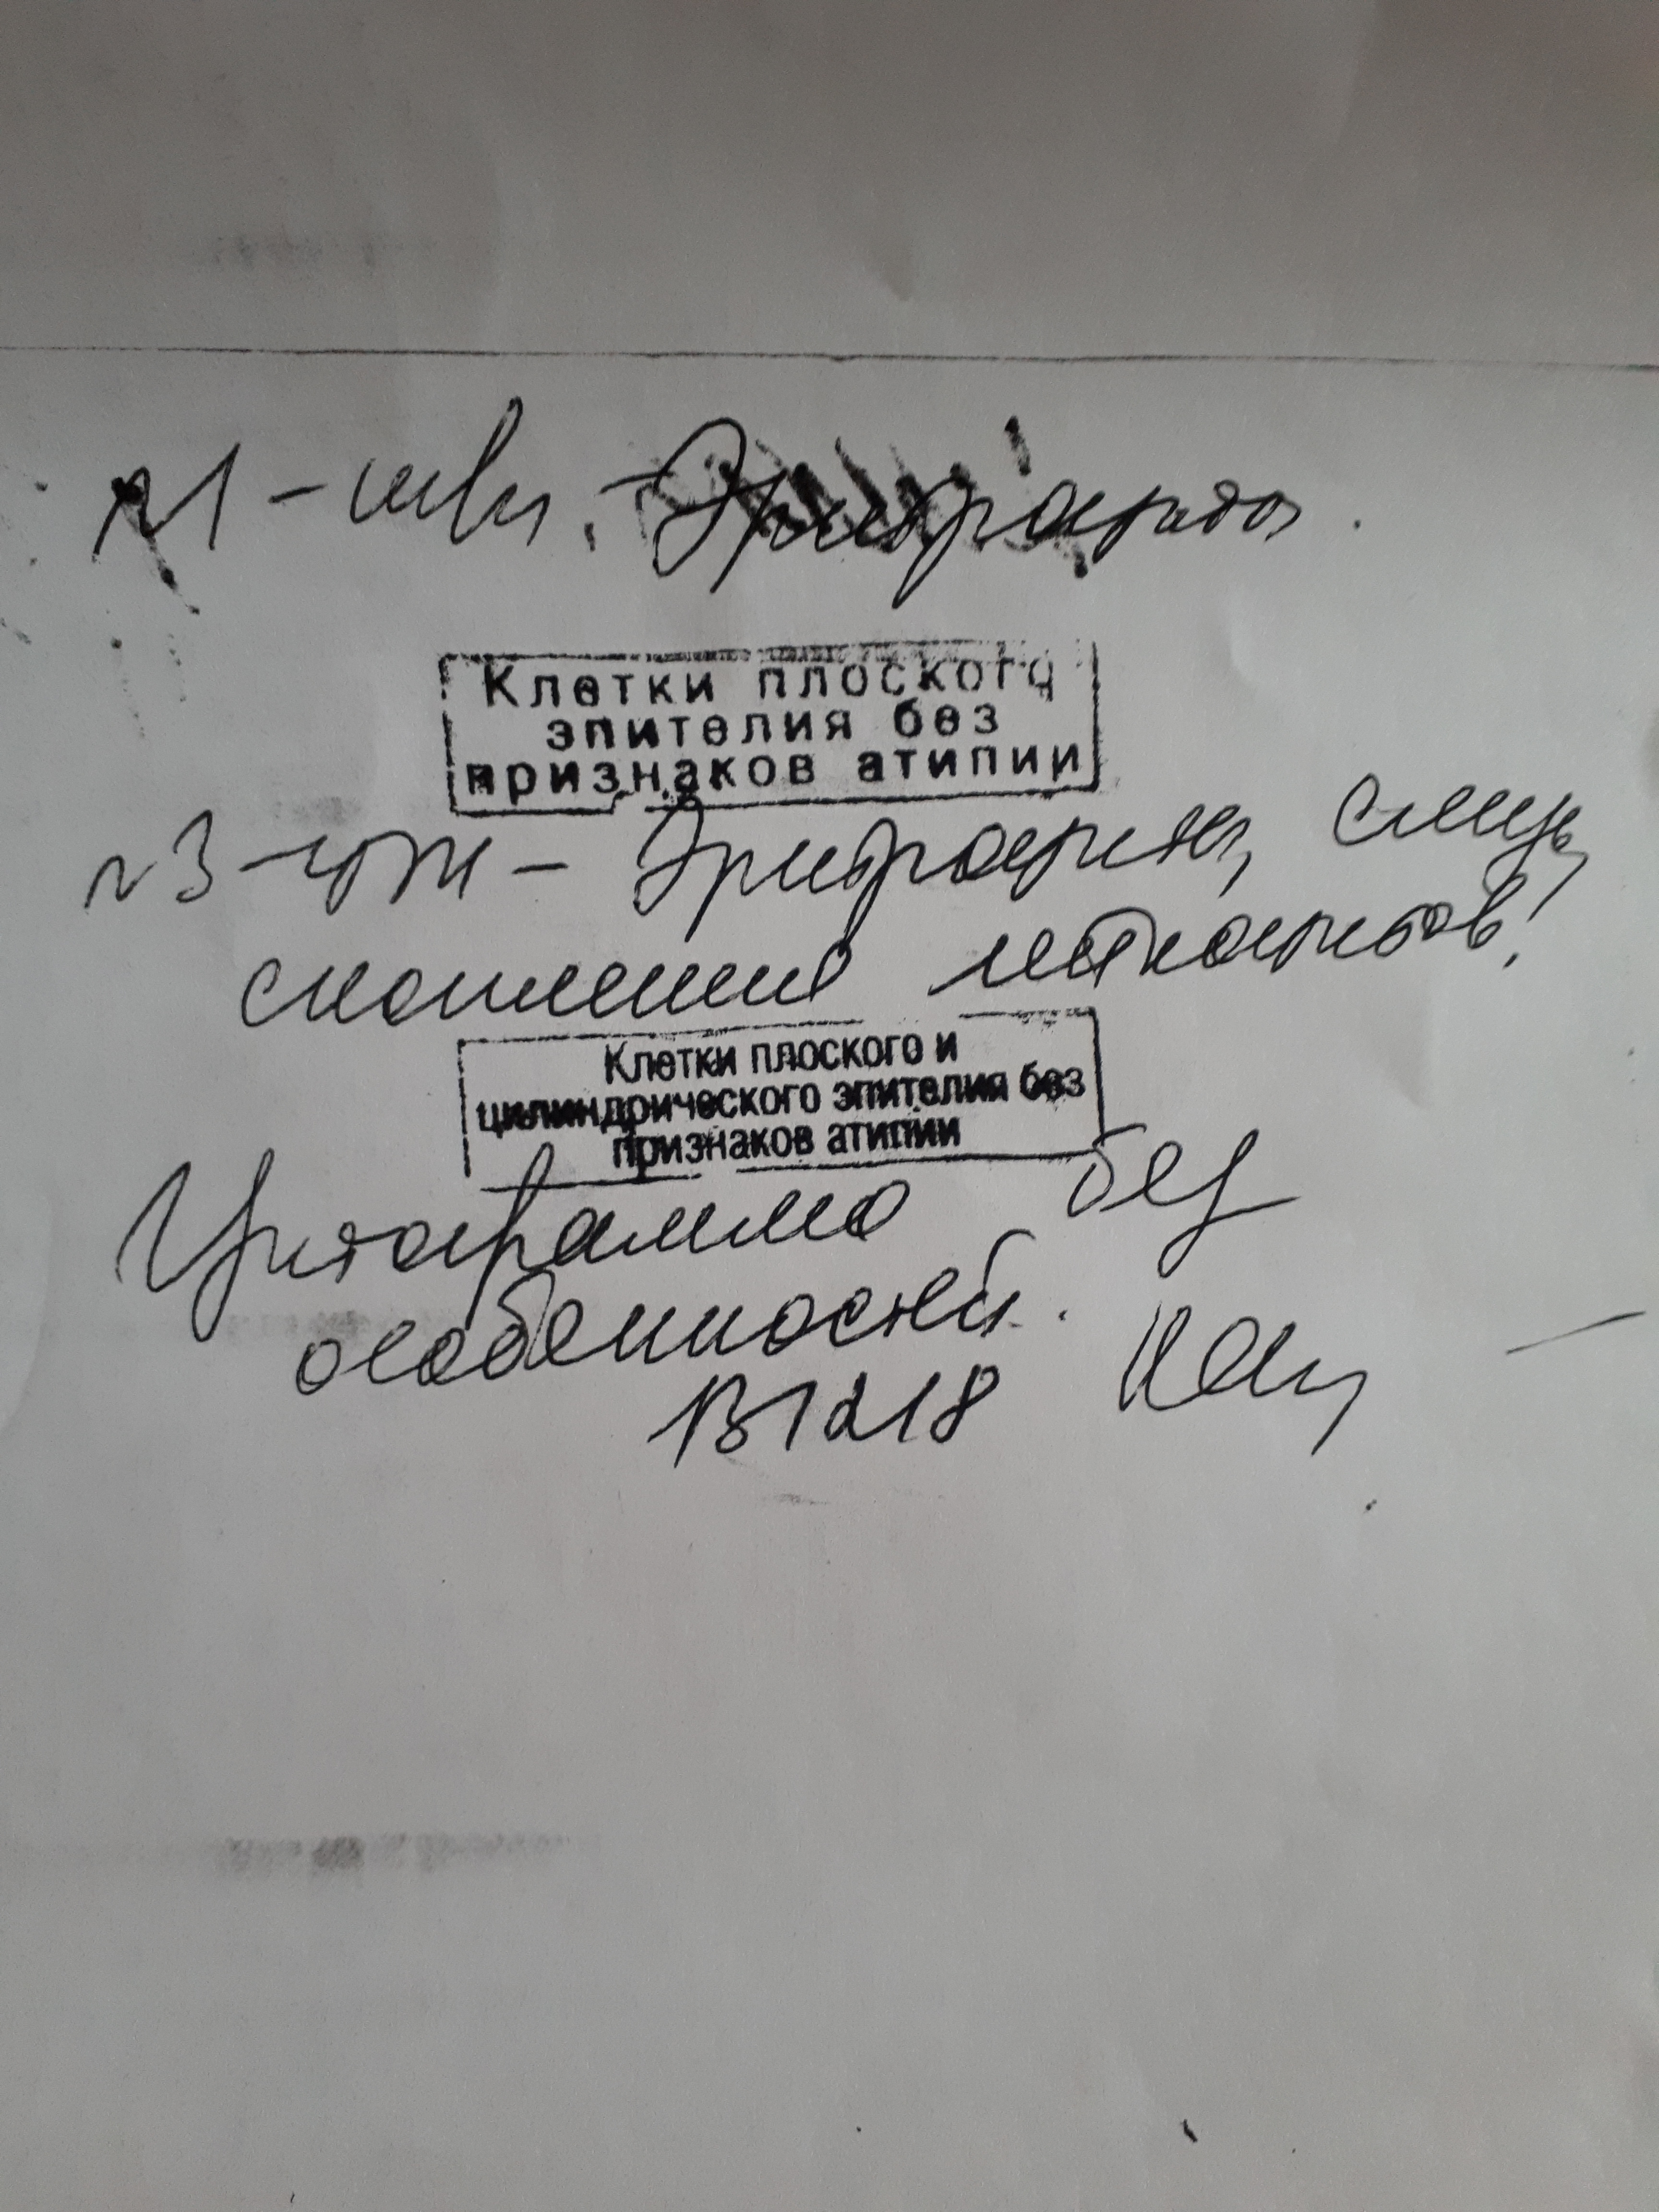 №1 - шви. - Эритроциты.
Клетки плоского
эпителия без
признаков атипии
№3 - - Эритроциты, слизь,
скопления лейкоцитов!
Клетки плоского и
цилиндрического эпителия без
признаков атипии
Цитограмма без
особенностей.
131218